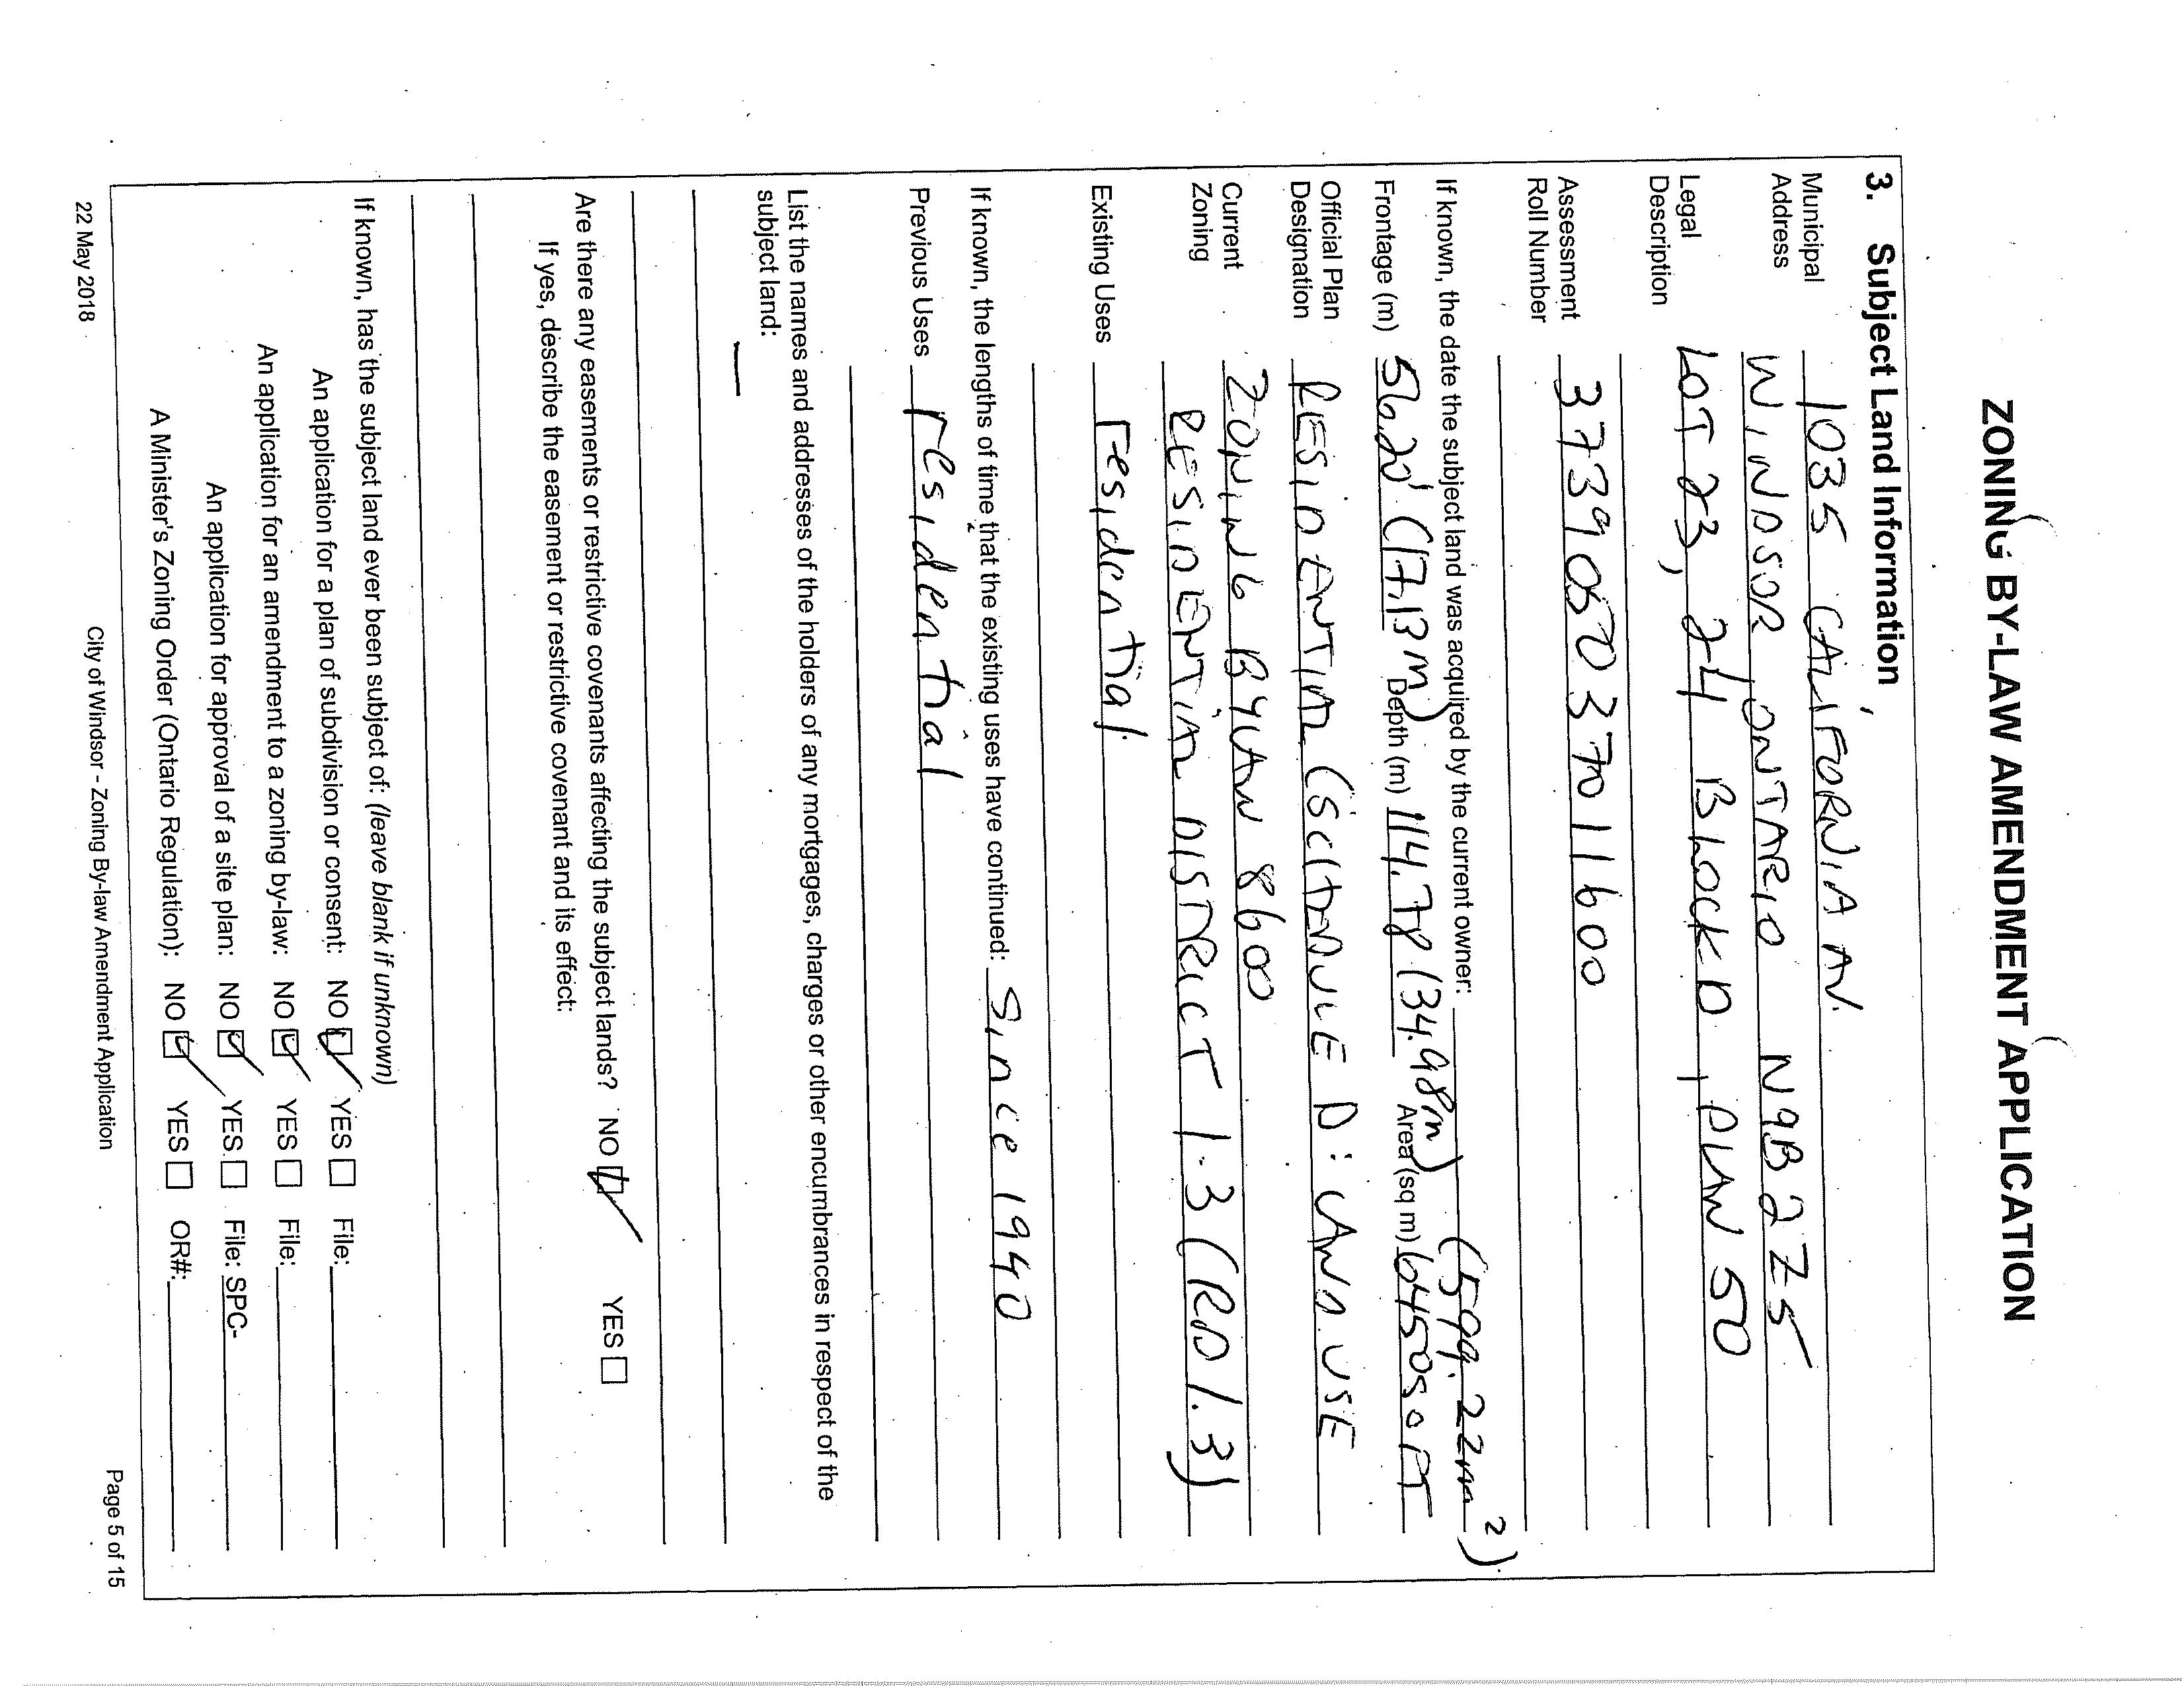 ZONING BY-LAW AMENDMENT APPLICATION
3. Subject Land Information
Municipal Address 1035 CALIFORNIA AV.
WINDSOR ONTARIO N9B 2Z5
Legal Description LOT 23, 24 BLOCK D, PLAN 50
Assessment Roll Number 3739050370 11600
If known, the date the subject land was acquired by the current owner:
(599.22m²)
Frontage (m) 56.20' (17.13m) Depth (m) 114.78 (34.98m) Area (sq m) 6450SQ FT
Official Plan Designation RESIDENTIAL (SCHEDULE D: LAND USE
Current Zoning ZONING BYLAW 8600
RESIDENTIAL DISTRICT 1.3 (RD 1.3)
Existing Uses residential
If known, the lengths of time that the existing uses have continued: Since 1940
Previous Uses residential
List the names and addresses of the holders of any mortgages, charges or other encumbrances in respect of the
subject land: —
Are there any easements or restrictive covenants affecting the subject lands? NO ☑ YES ☐
If yes, describe the easement or restrictive covenant and its effect:
If known, has the subject land ever been subject of: (leave blank if unknown)
An application for a plan of subdivision or consent: NO ☑ YES ☐ File:
An application for an amendment to a zoning by-law: NO ☑ YES ☐ File:
An application for approval of a site plan: NO ☑ YES ☐ File: SPC-
A Minister's Zoning Order (Ontario Regulation): NO ☑ YES ☐ OR#:
22 May 2018 City of Windsor - Zoning By-law Amendment Application Page 5 of 15